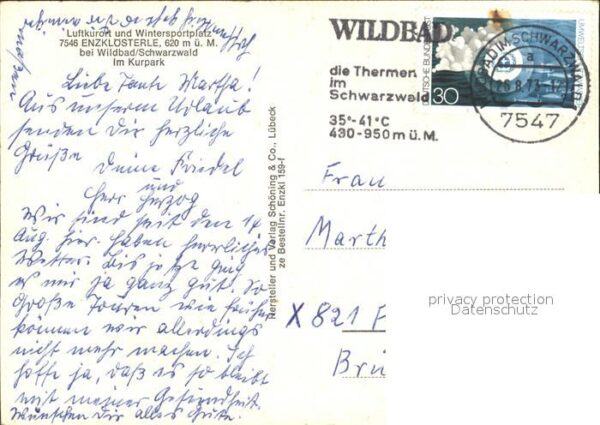 Luftkurort und Wintersportplatz
7546 ENZKLÖSTERLE, 620 m ü. M.
bei Wildbad/Schwarzwald
Im Kurpark
Liebe Tante Martha!
Aus unserem Urlaub
senden Dir herzliche
Grüße
Deine Friedel
und
Herr Herzog
Wir sind seit dem 14.
Aug. hier. Haben herrliches
Wetter. Bis jetzt ging
es mir ja ganz gut. So
große Touren wie früher
können wir allerdings
nicht mehr machen. Ich
hoffe ja, daß es so bleibt
mit meiner Gesundheit.
Wünschen Dir alles Gute.
Hersteller und Verlag Schöning & Co., Lübeck
ze Bestellnr. Enzkl 159-f
WILDBAD
die Thermen
im
Schwarzwald
35°-41°C
430-950 m ü. M.
DEUTSCHE BUNDESPOST
30
WILDBAD IM SCHWARZWALD 1
a
7547
Frau
Marth
X 821 F
Brü
privacy protection
Datenschutz